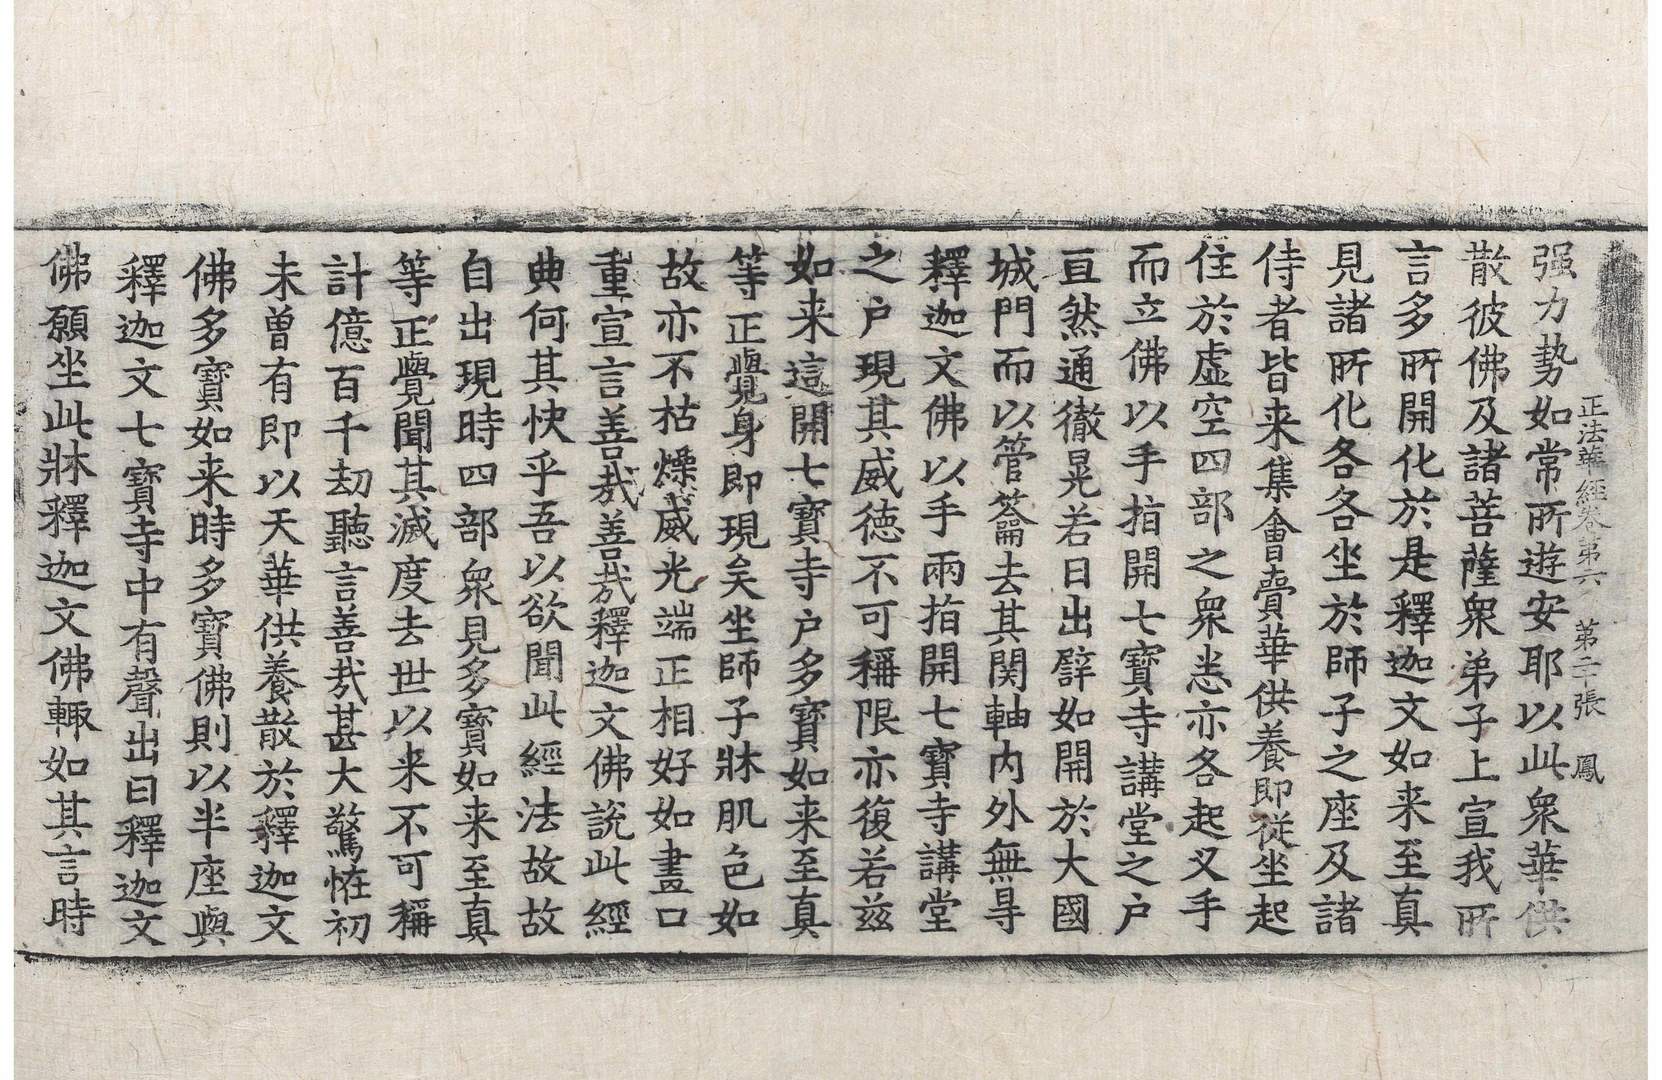 正法華經卷第六　第二十張　鳳
强力勢如常所遊安耶以此衆華供
散彼佛及諸菩薩衆弟子上宣我所
言多所開化於是釋迦文如来至真
見諸所化各各坐於師子之座及諸
侍者皆来集會賷華供養即從坐起
住於虛空四部之衆悉亦各起叉手
而立佛以手指開七寶寺講堂之户
亘然通徹晃若日出譬如開於大國
城門而以管籥去其関軸内外無㝵
釋迦文佛以手兩指開七寶寺講堂
之户現其威德不可稱限亦復若茲
如来這開七寶寺户多寶如来至真
等正覺身即現矣坐師子牀肌色如
故亦不枯燥威光端正相好如畫口
重宣言善哉善哉釋迦文佛說此經
典何其快乎吾以欲聞此經法故故
自出現時四部衆見多寶如来至真
等正覺聞其滅度去世以来不可稱
計億百千劫聽言善哉甚大驚恠初
未曾有即以天華供養散於釋迦文
佛多寶如来時多寶佛則以半座與
釋迦文七寶寺中有聲出曰釋迦文
佛願坐此牀釋迦文佛輙如其言時